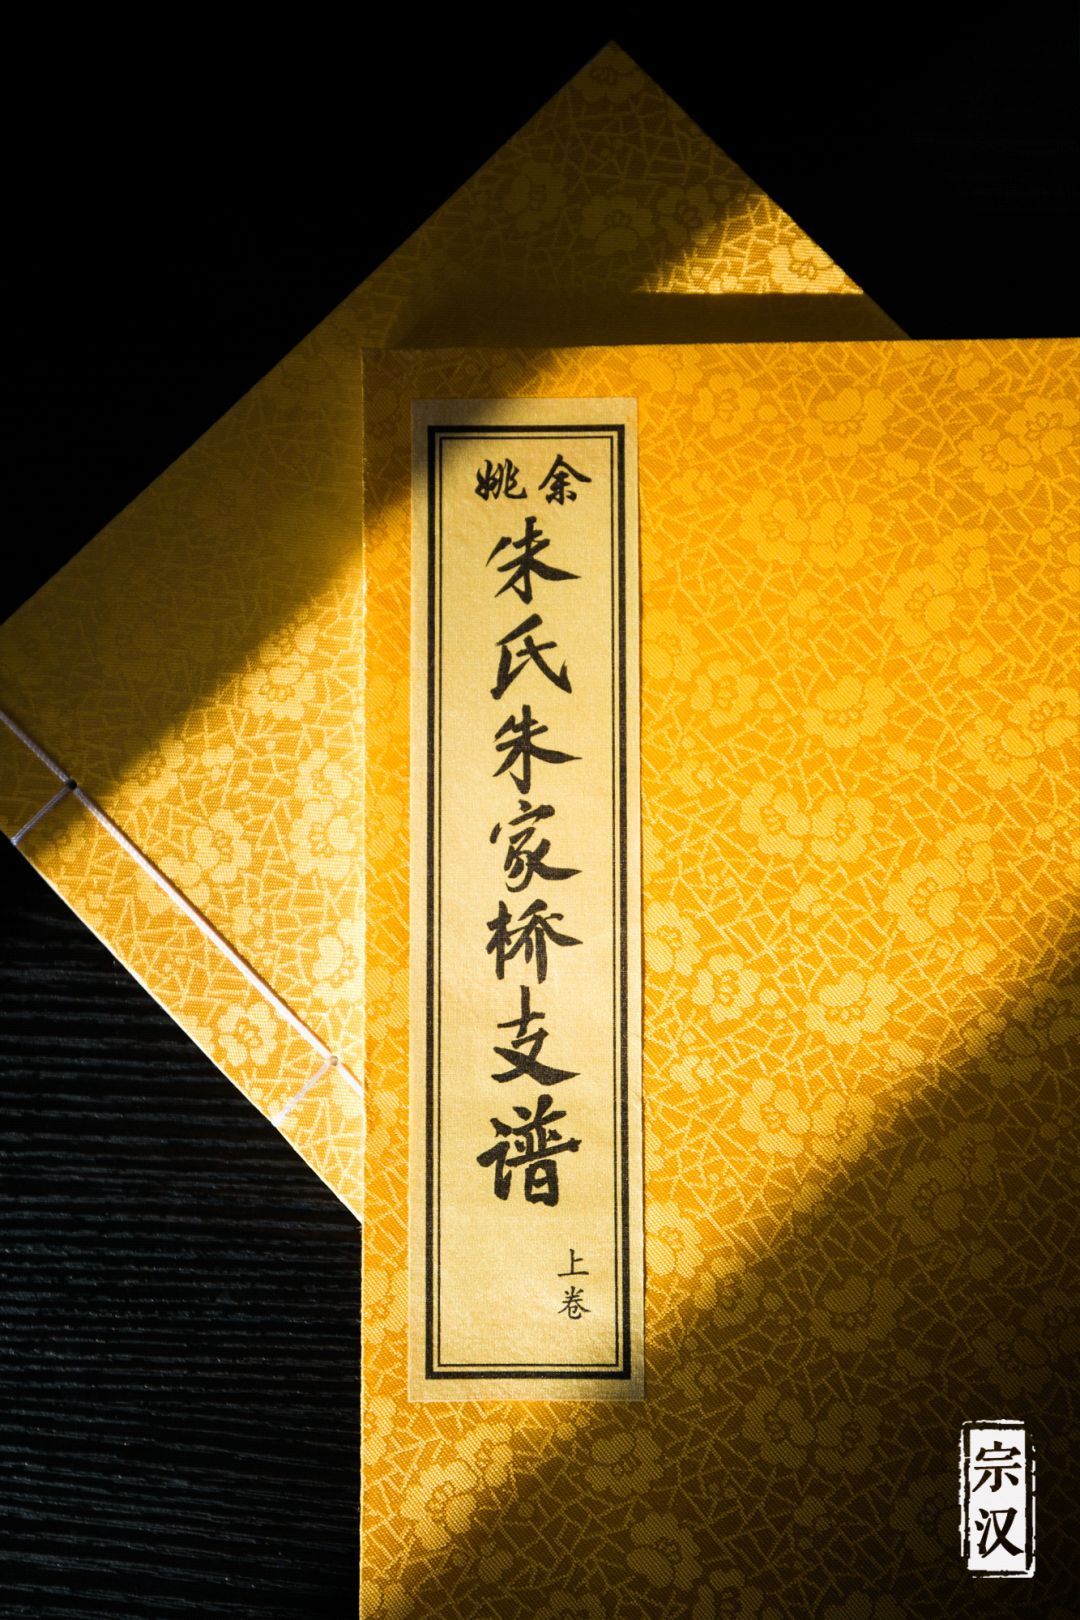 余姚
朱氏朱家桥支谱
上卷
宗汉